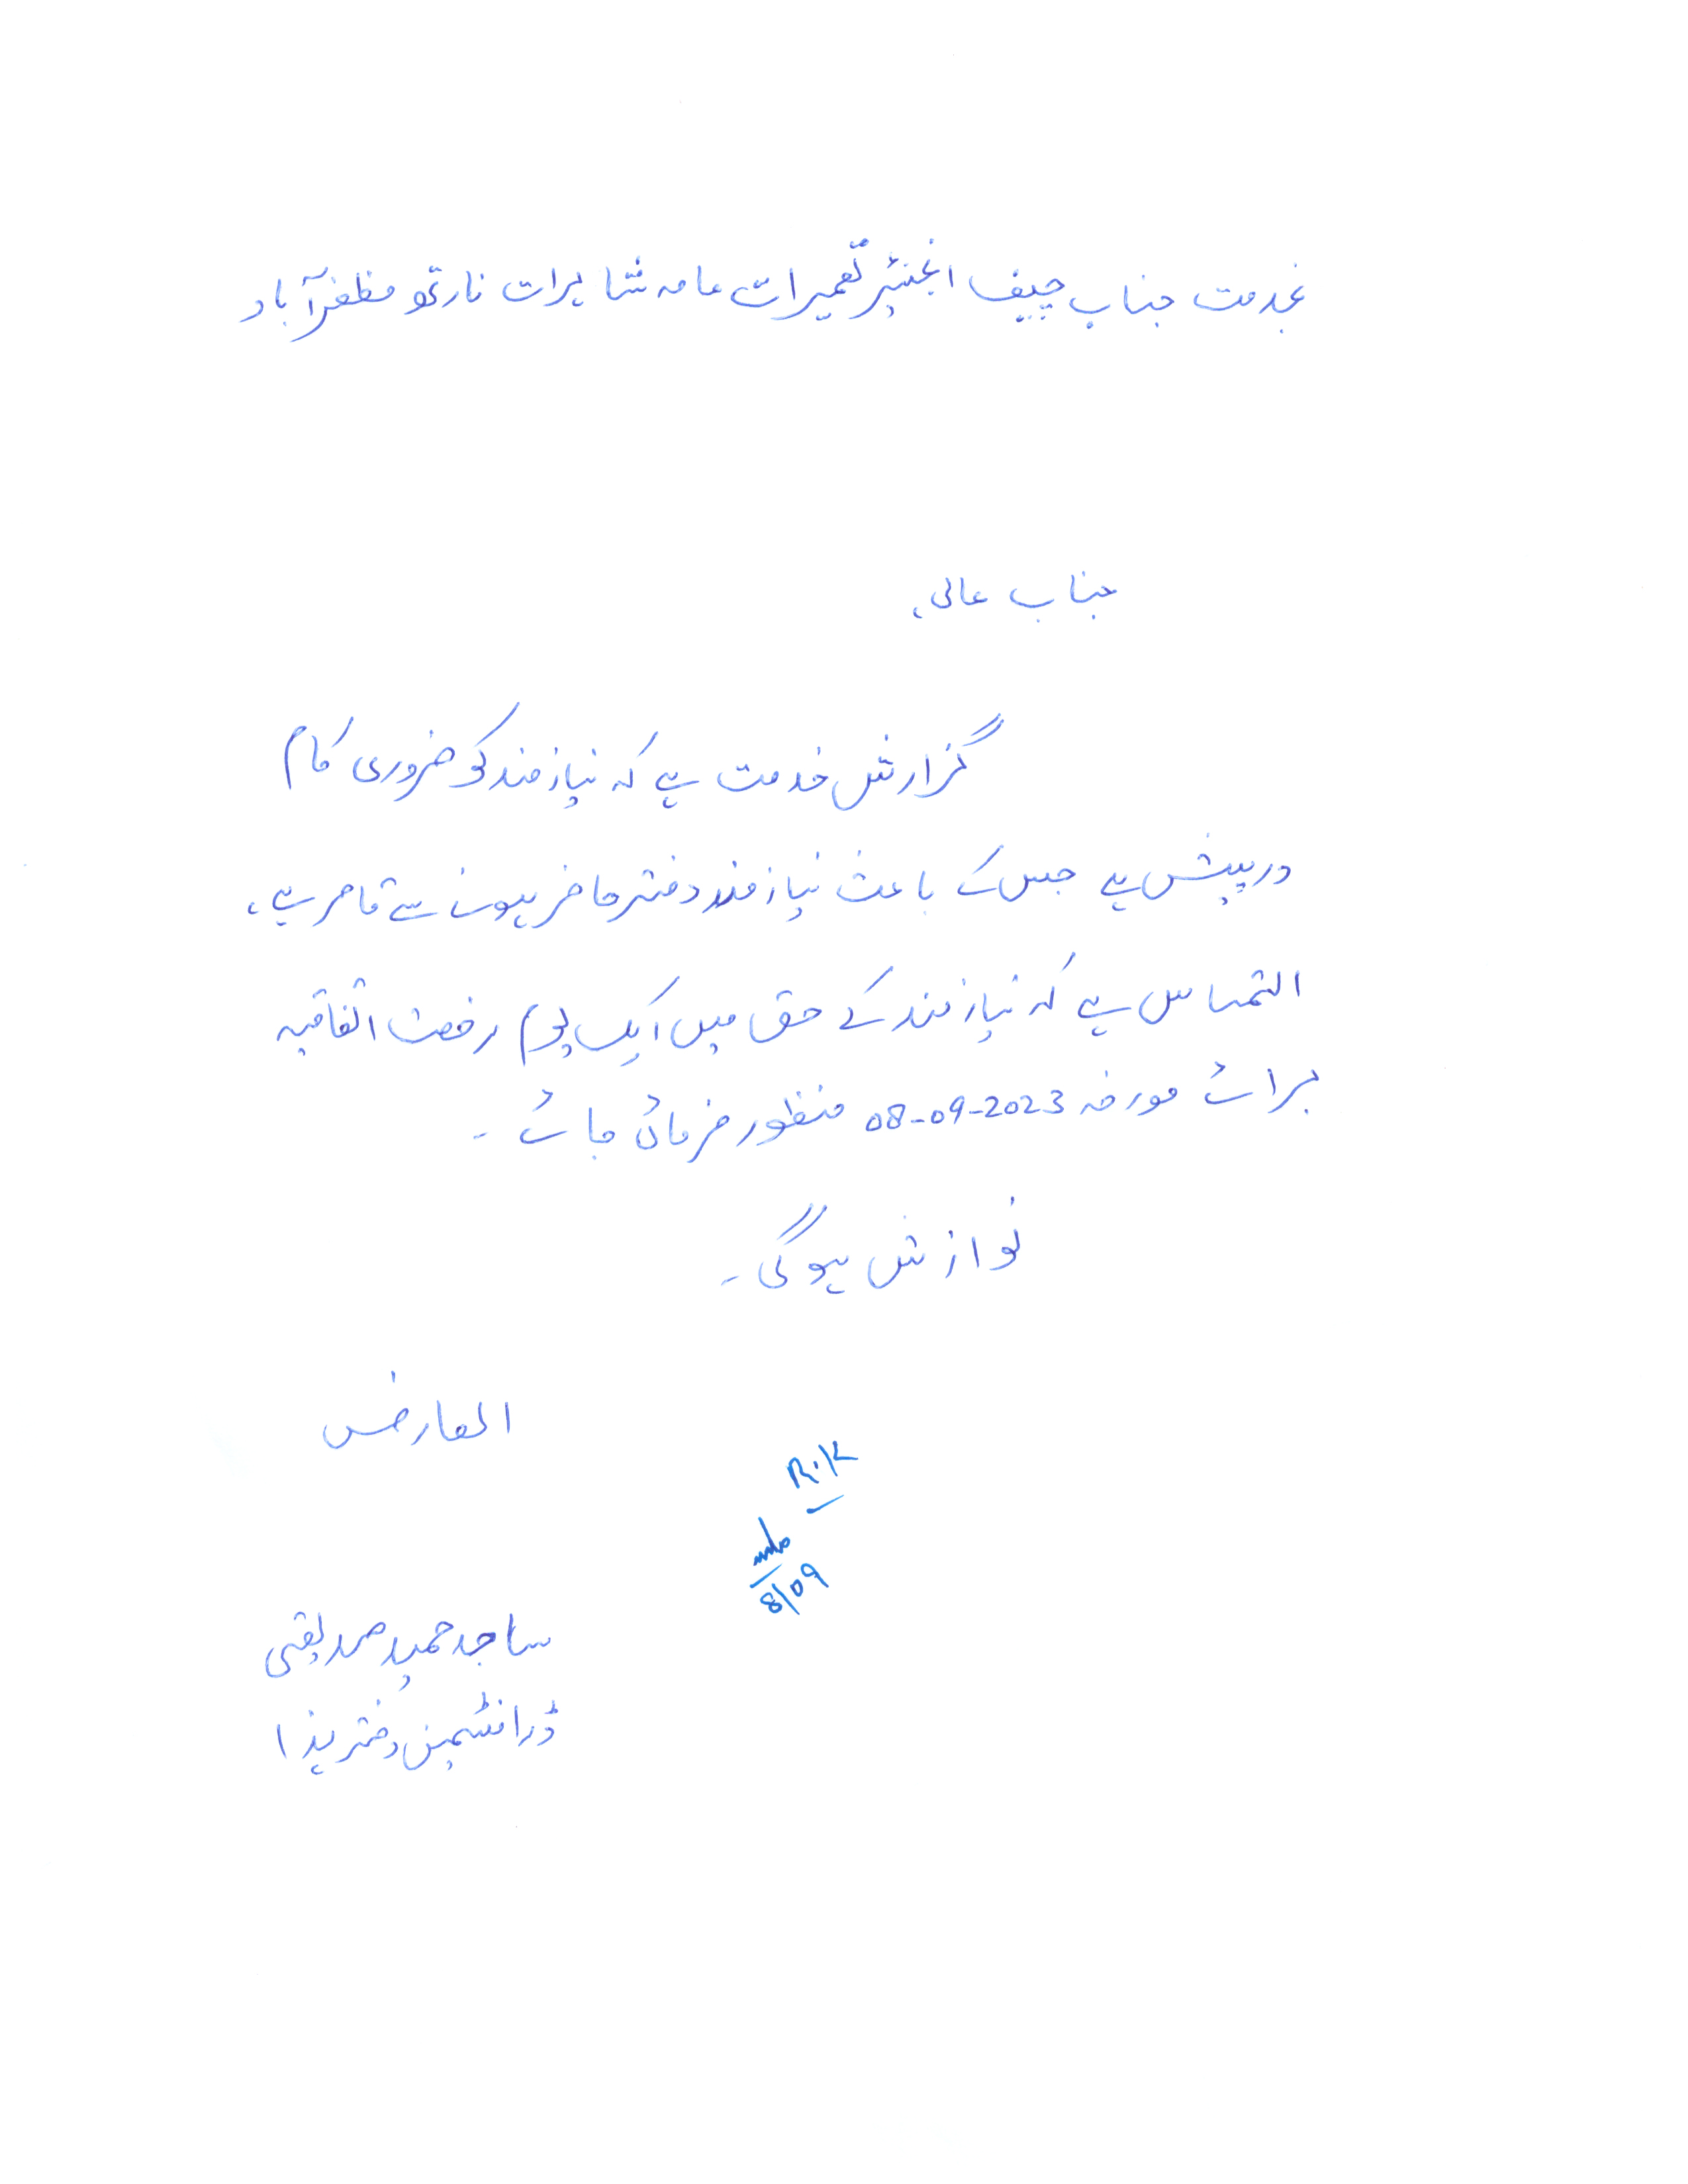 بخدمت جناب چیف انجنیئر تعمیرات عامہ شاہرات نارتھ مظفرآباد
جناب عالی،
گزارش خدمت ہے کہ نیازمند کو ضروری کام
درپیش ہے جس کے باعث نیازمند دفتر حاضر ہونے سے قاصر ہے،
التماس ہے کہ نیازمند کے حق میں ایک یوم رخصت اتفاقیہ
برائے مورخہ 08-09-2023 منظور فرمائی جائے ۔
نوازش ہوگی ۔
العارض
R.K
8/09
ساجد حمید صدیقی
ڈرافٹسمین دفتر ہذا